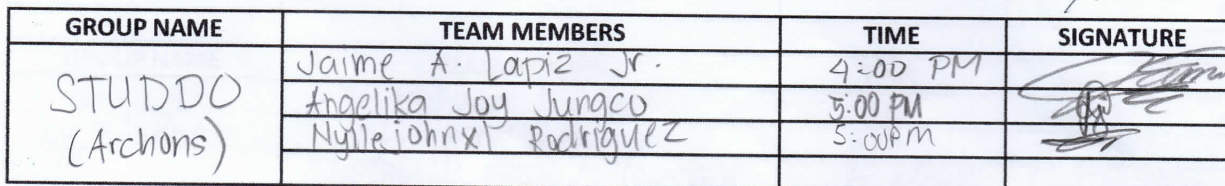 GROUP NAME TEAM MEMBERS TIME SIGNATURE
STUDDO
(Archons)
Jaime A. Lapiz Jr. 4:00 PM
Angelika Joy Jungco 5:00 PM
Nyllejohnxl Rodriguez 5:00PM